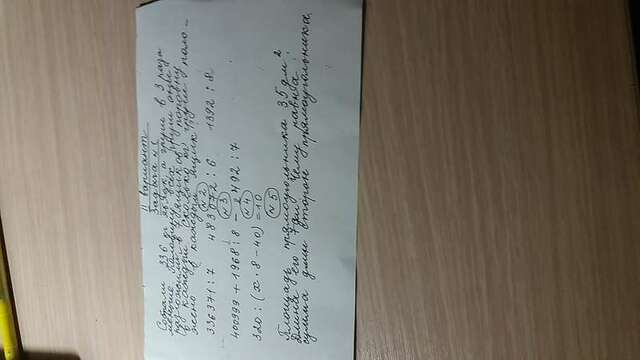 II вариант
Задача №1
Собрали 336 кг яблок, а груш в 3 раза
меньше. Половину всех груш они
разложили в 7 ящиков, поровну
в каждый. Сколько кг груш поло-
жено в каждый ящик?
№2
336371 : 7 483072 : 6 1392 : 8
№3
400999 + 1968 : 8 - 8492 : 7
№4
320 : (x · 8 - 40) = 10
№5
Площадь прямоугольника 35 дм²
Длина его 7 дм. Чему равна
сумма длин сторон прямоугольника.